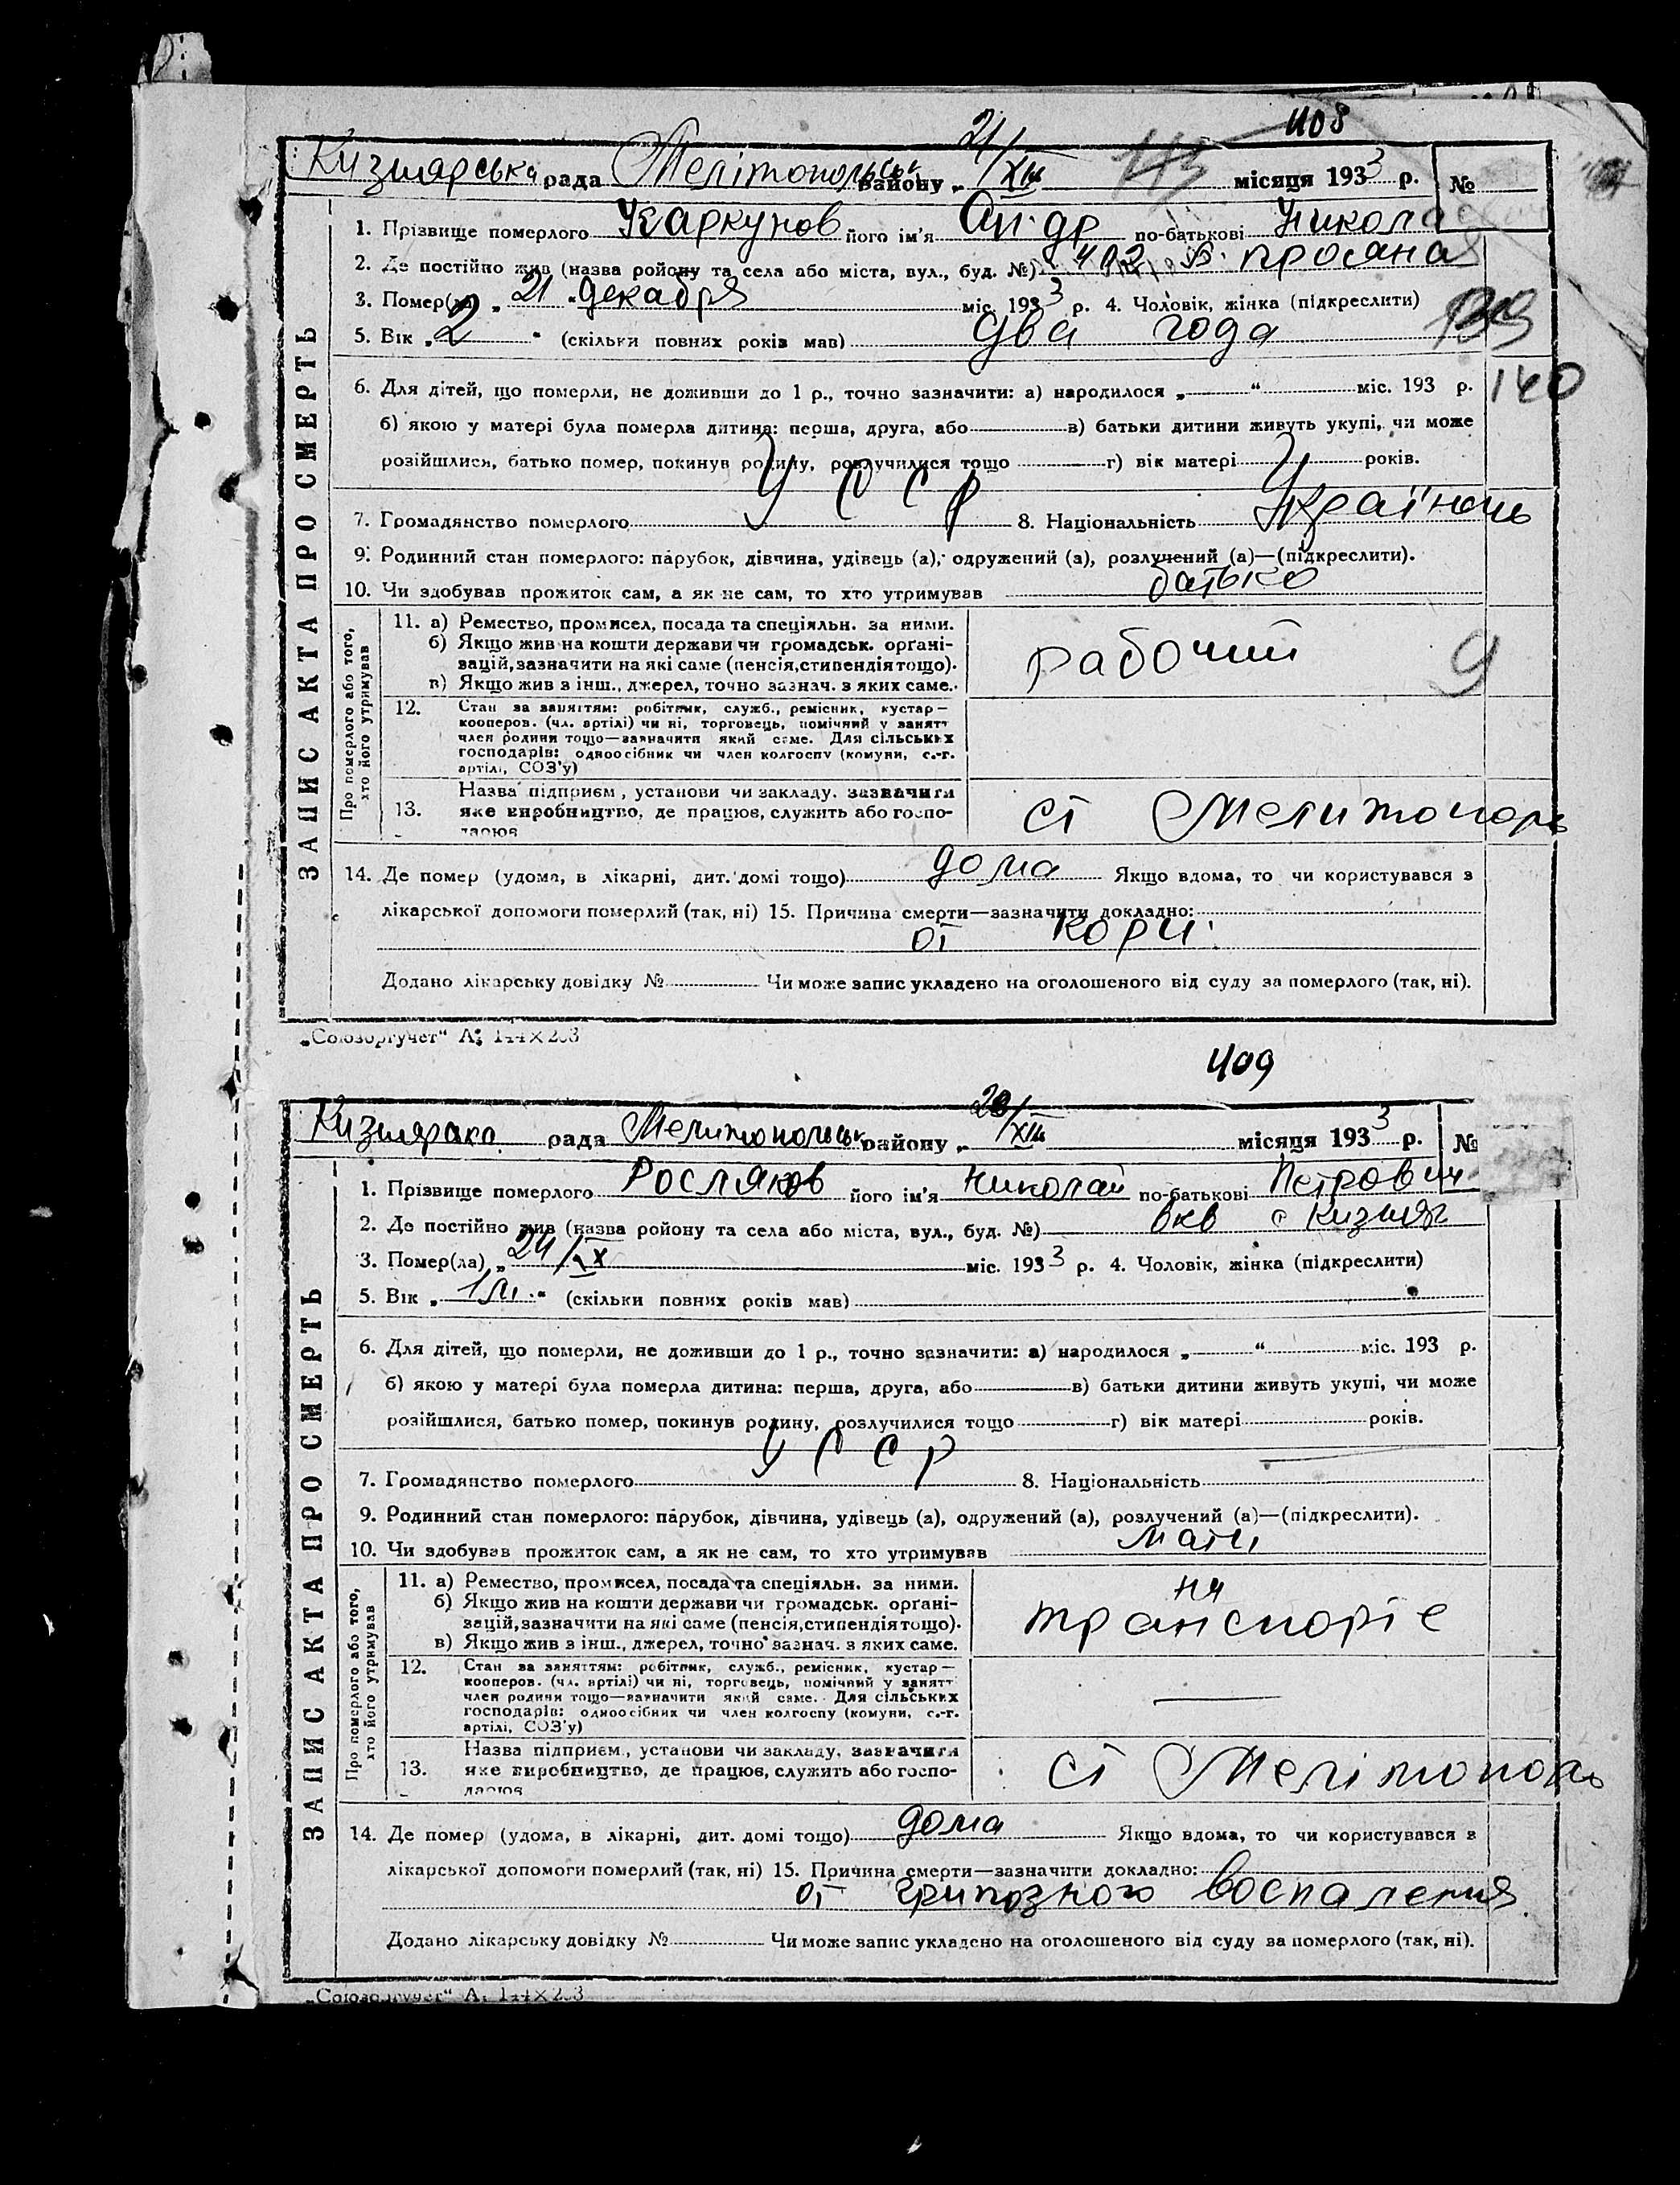 408
Кизиярська рада Мелітопольськ району „ 21/XII місяця 1933 р. №
1. Прізвище померлого його ім'я по-батькові Никола
2. Де постійно жив (назва ройону та села або міста, вул., буд. №)
3. Помер(ла) „ 21 " декабря міс. 1933 р. 4. Чоловік, жінка (підкреслити)
5. Вік „ 2 " (скільки повних років мав) два года
140
6. Для дітей, що померли, не доживши до 1 р., точно зазначити: а) народилося „ " міс. 193 р.
б) якою у матері була померла дитина: перша, друга, або в) батьки дитини живуть укупі, чи може
розійшлися, батько помер, покинув родину, розлучилися тощо г) вік матері років.
7. Громадянство померлого УССР 8. Національність Україньць
9. Родинний стан померлого: парубок, дівчина, удівець (а), одружений (а), розлучений (а)—(підкреслити).
10. Чи здобував прожиток сам, а як не сам, то хто утримував батько
ЗАПИС АКТА ПРО СМЕРТЬ
Про померлого або того, хто його утримував
11. а) Ремество, промисел, посада та спеціяльн. за ними.
б) Якщо жив на кошти держави чи громадськ. органі-
зацій, зазначити на які саме (пенсія, стипендія тощо).
в) Якщо жив з інш., джерел, точно зазнач. з яких саме.
рабочий
9
12. Стан за заняттям: робітник, служб., ремісник, кустар—
кооперов. (чл. артілі) чи ні, торговець, помічний у занятт
член родини тощо—зазначити який саме. Для сільських
господарів: одноосібник чи член колгоспу (комуни, с.-г.
артілі, СОЗ'у)
13. Назва підприєм., установи чи закладу, зазначити
яке виробництво, де працює, служить або госпо-
дарює
ст Мелитополь
14. Де помер (удома, в лікарні, дит. домі тощо) дома Якщо вдома, то чи користувався з
лікарської допомоги померлий (так, ні) 15. Причина смерти—зазначити докладно:
от кори
Додано лікарську довідку № Чи може запис укладено на оголошеного від суду за померлого (так, ні).
„Союзоргучет" А
409
рада Мелитопольськ району „ /XII місяця 1933 р. №
1. Прізвище померлого Росляков його ім'я Николай по-батькові Петрович
2. Де постійно жив (назва ройону та села або міста, вул., буд. №)
3. Помер(ла) „ міс. 1933 р. 4. Чоловік, жінка (підкреслити)
5. Вік „ " (скільки повних років мав)
6. Для дітей, що померли, не доживши до 1 р., точно зазначити: а) народилося „ " міс. 193 р.
б) якою у матері була померла дитина: перша, друга, або в) батьки дитини живуть укупі, чи може
розійшлися, батько помер, покинув родину, розлучилися тощо г) вік матері років.
7. Громадянство померлого УССР 8. Національність
9. Родинний стан померлого: парубок, дівчина, удівець (а), одружений (а), розлучений (а)—(підкреслити).
10. Чи здобував прожиток сам, а як не сам, то хто утримував мати
ЗАПИС АКТА ПРО СМЕРТЬ
Про померлого або того, хто його утримував
11. а) Ремество, промисел, посада та спеціяльн. за ними.
б) Якщо жив на кошти держави чи громадськ. органі-
зацій, зазначити на які саме (пенсія, стипендія тощо).
в) Якщо жив з інш., джерел, точно зазнач. з яких саме.
на
транспорте
12. Стан за заняттям: робітник, служб., ремісник, кустар—
кооперов. (чл. артілі) чи ні, торговець, помічний у занятт
член родини тощо—зазначити який саме. Для сільських
господарів: одноосібник чи член колгоспу (комуни, с.-г.
артілі, СОЗ'у)
13. Назва підприєм., установи чи закладу, зазначити
яке виробництво, де працює, служить або госпо-
дарює
ст Мелітополь
14. Де помер (удома, в лікарні, дит. домі тощо) дома Якщо вдома, то чи користувався з
лікарської допомоги померлий (так, ні) 15. Причина смерти—зазначити докладно:
от грипозного воспаления
Додано лікарську довідку № Чи може запис укладено на оголошеного від суду за померлого (так, ні).
„Союзоргучет" А